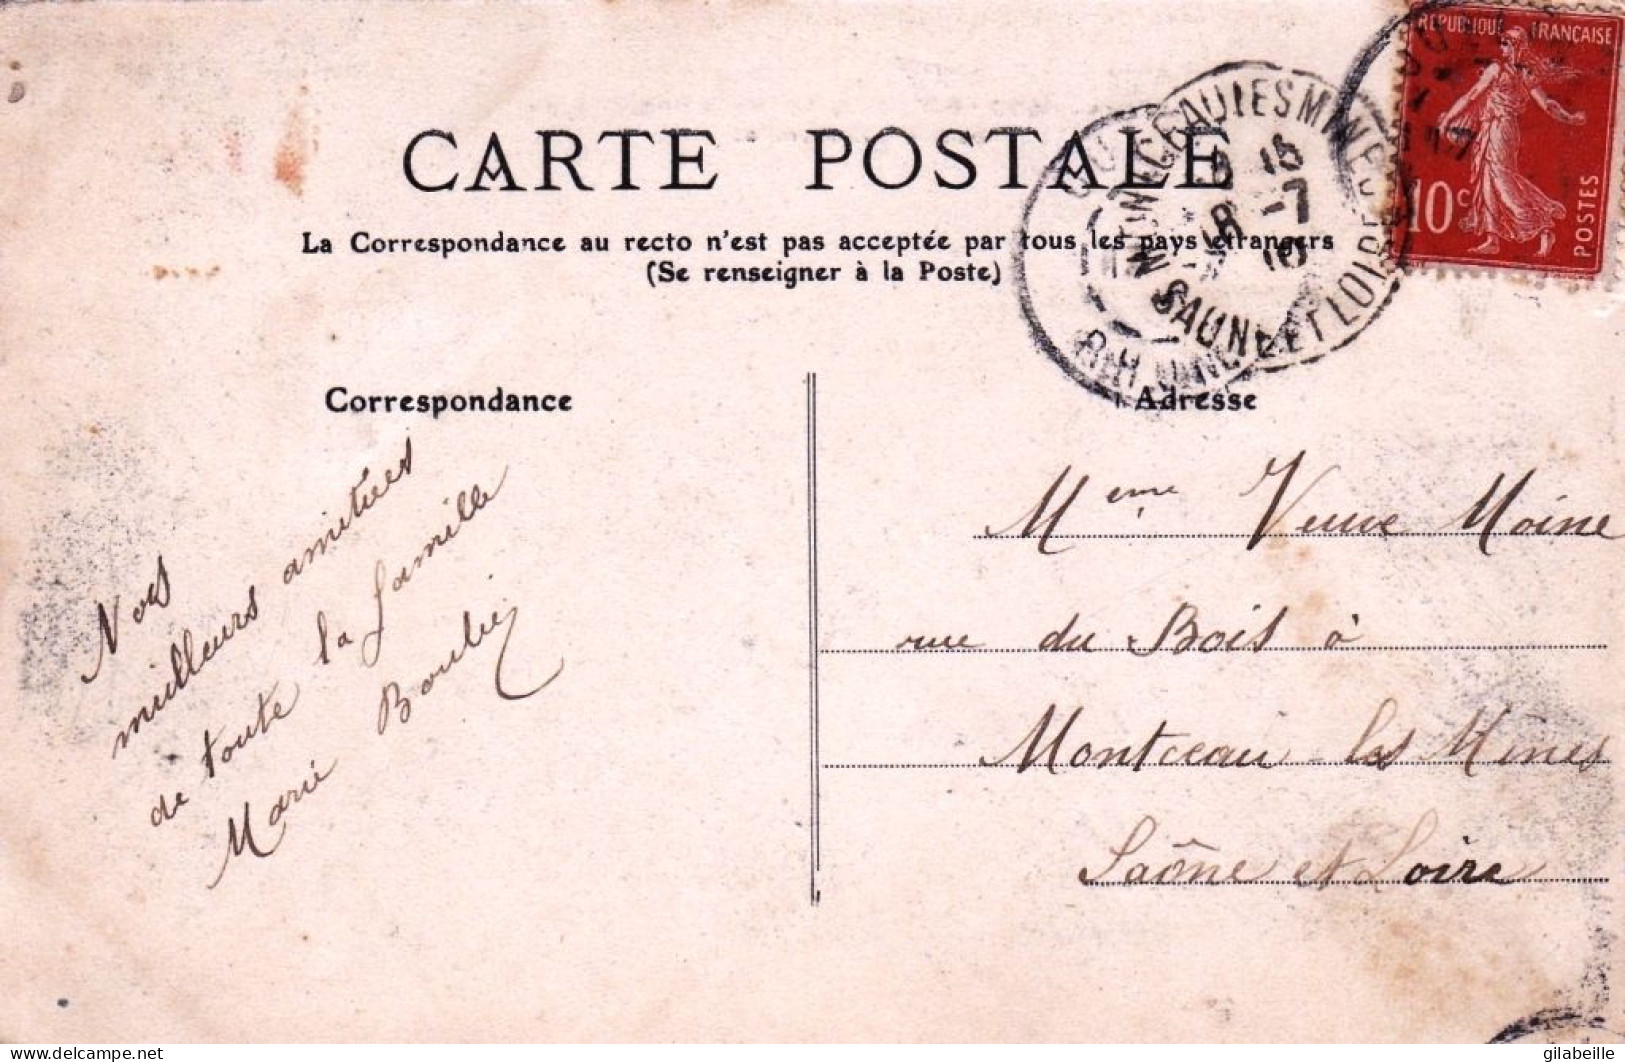 RÉPUBLIQUE FRANÇAISE
10c
POSTES
MONTCEAU LES MINES
18 15
18 -7
10
SAONE ET LOIRE
CARTE POSTALE
La Correspondance au recto n'est pas acceptée par tous les pays étrangers
(Se renseigner à la Poste)
Correspondance
Nos
meilleurs amitiées
de toute la famille
Marie Boulie
Adresse
Meme Veuve Moine
rue du Bois à
Montceau-les Mines
Saône et Loire
delcampe.net
gilabeille